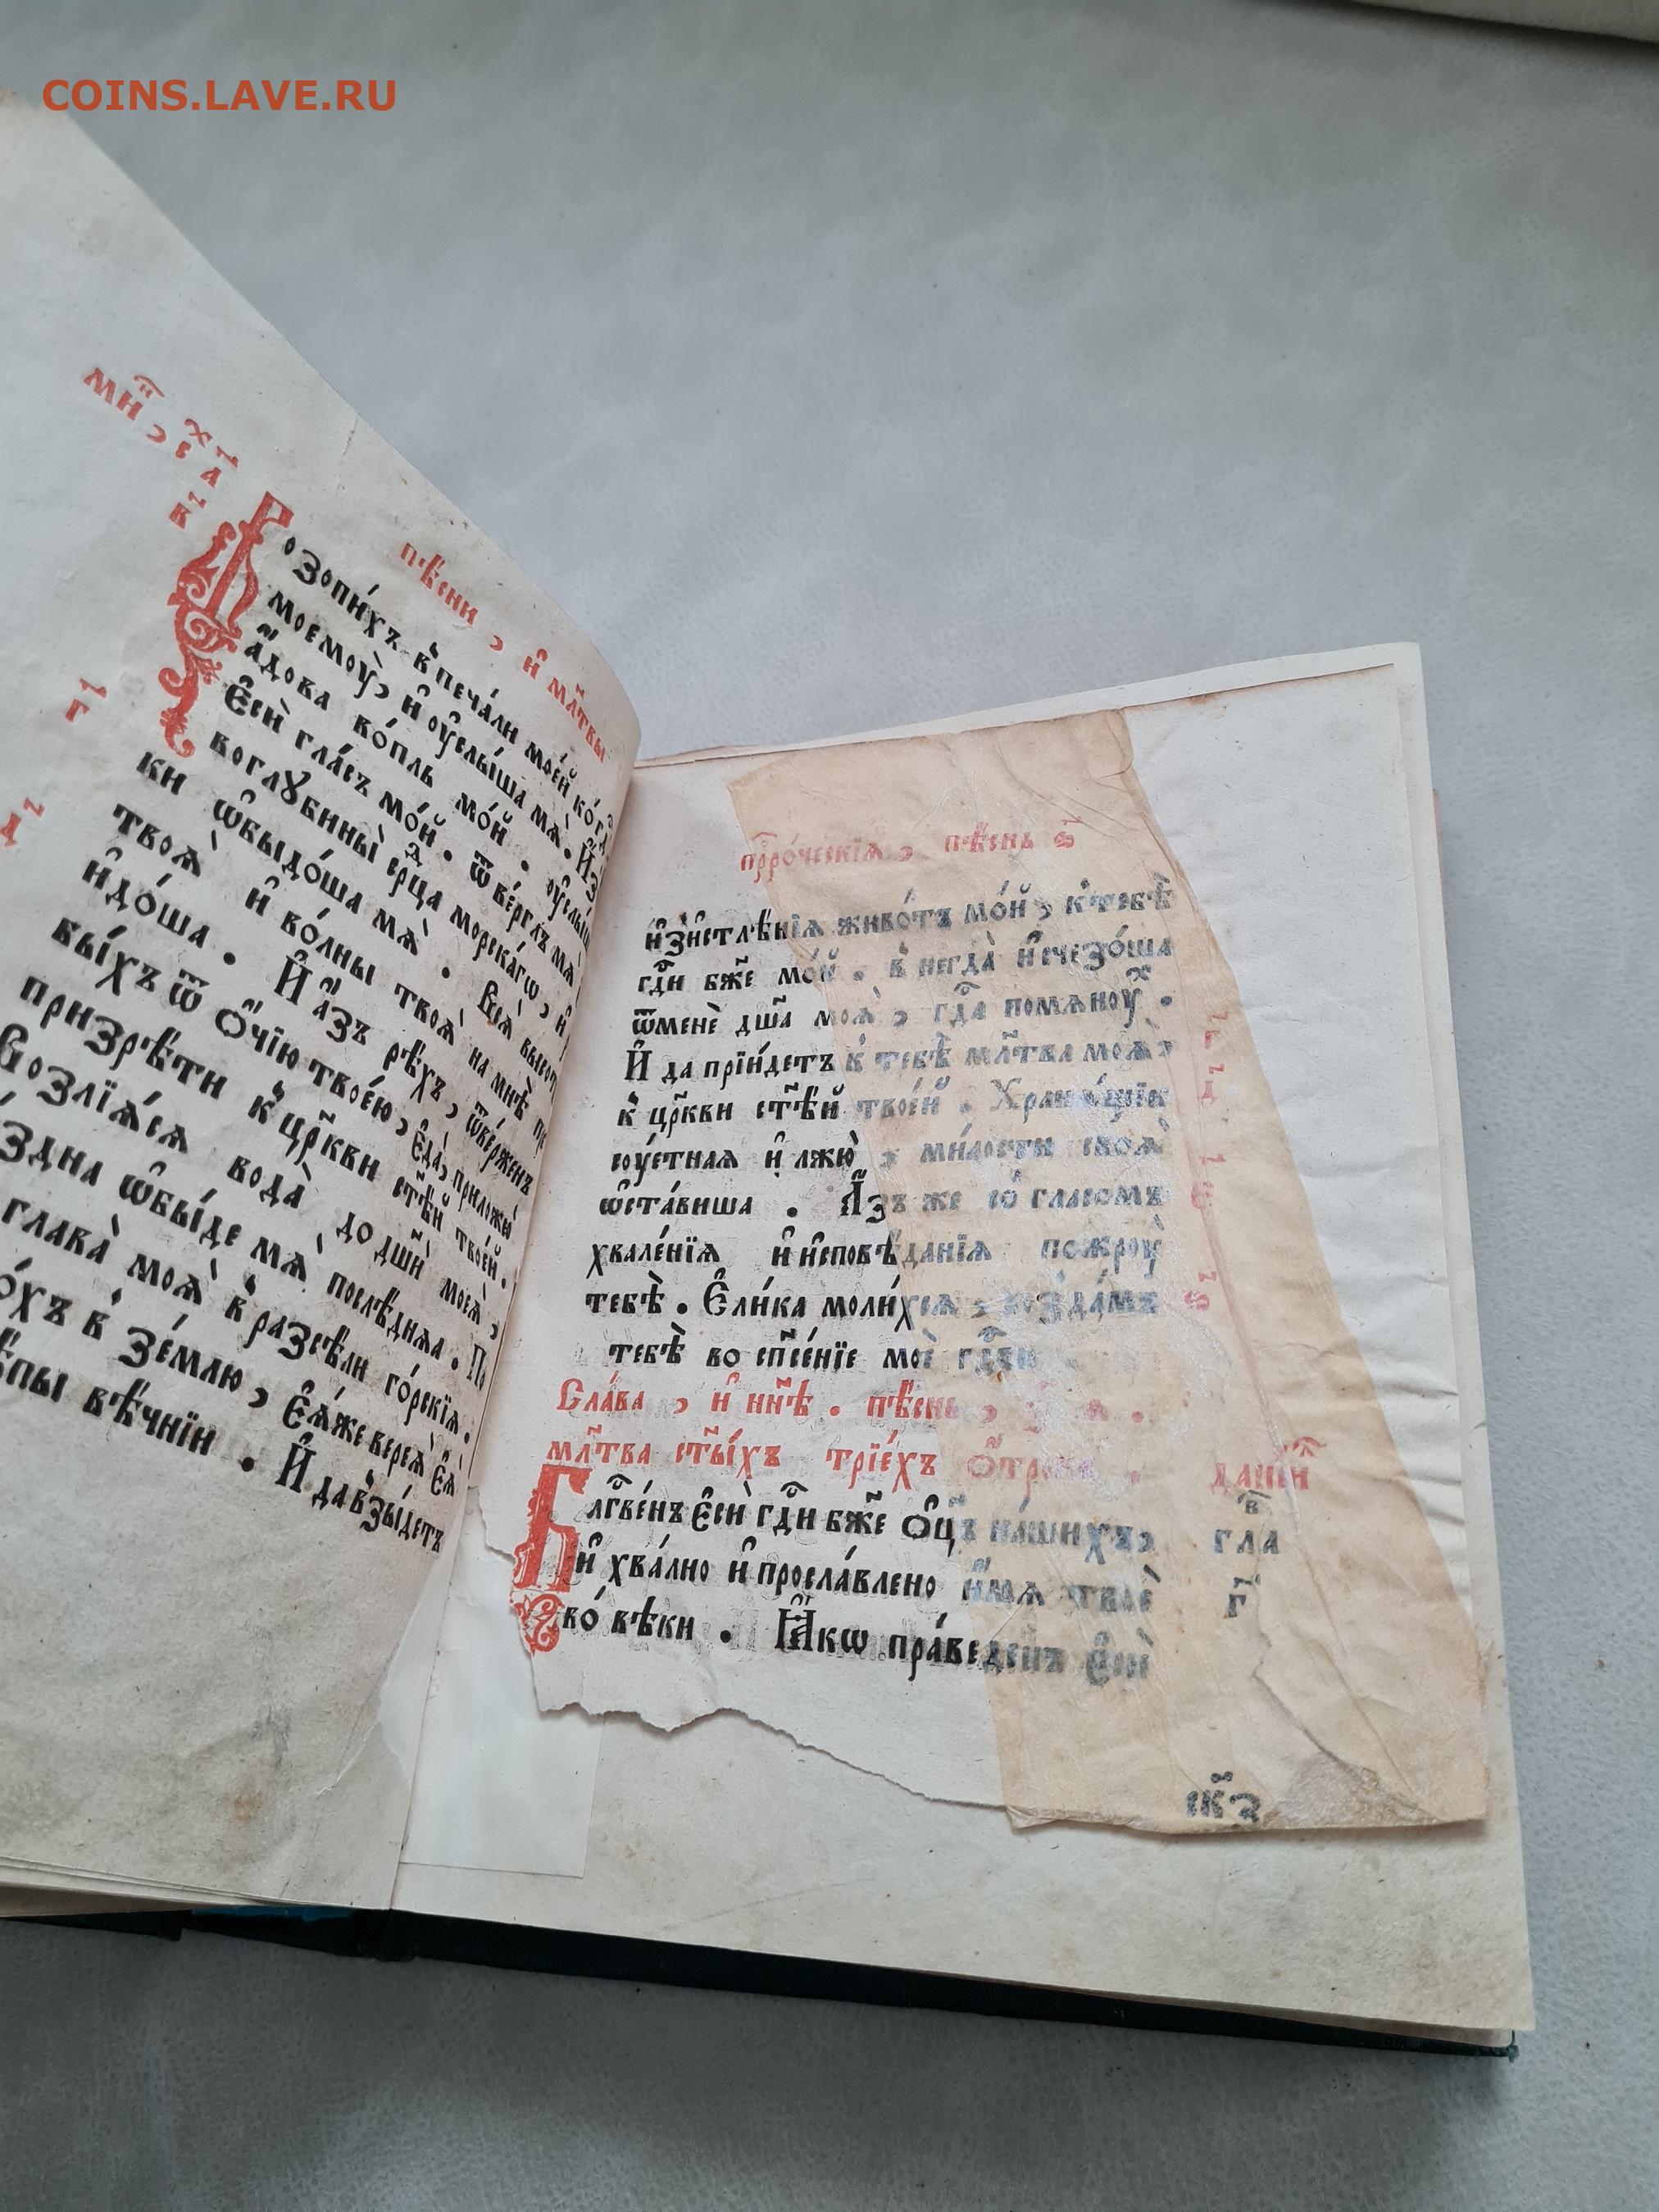 COINS.LAVE.RU
пѣ́сни , и҆ мл҃твы
о҆зопи́хъ в̾печа́ли мое́й ко́гд̾
моемоу̀ , и҆ оу҆слы́ша мѧ̀ . И҆з̾
а҆́дова во́пль мо́й . оу҆слы́ша
є҆сѝ гла́съ мо́й . ѿве́рглъ мѧ̀
воглꙋбины̀ се́рдца морска́гѡ , и҆
ки ѡ҆быдо́ша мѧ̀ . Всѧ̀ высоты̀
твоѧ̀ и҆ во́лны твоѧ̀ на мнѣ̀ пре
и҆до́ша . И҆ а҆́зъ рѣ́хъ , ѿве́рженъ
бы́хъ ѿ ѻ҆́чїю твое́ю , є҆да̀ приложу̀
призрѣ́ти к̾цр҃кви ст҃ѣ́й твое́й .
Возлїѧ́сѧ вода̀ до дш҃ѝ моеѧ̀ ,
здна ѡ҆бы́де мѧ̀ послѣ́днѧѧ . По
глава̀ моѧ̀ в̾разсѣ́ли го́рскїѧ .
о́хъ в̾ зе́млю , є҆ѧ́же вереѧ̀ є҆ѧ̀
ѣпы вѣ́чнїи . И҆ да в̾зы́детъ
прⷪ҇ро́ческїѧ , пѣ́снь ѕ҃
и҆зъи҆стлѣ́нїѧ живо́тъ мо́й , к̾тебѣ̀
гдⷭ҇и бж҃е мо́й . в̾негда̀ и҆счезо́ша
ѿменѐ дш҃а моѧ̀ , гдⷭ҇а помѧноу́хъ .
И҆ да прїи́детъ к̾ тебѣ̀ мл҃тва моѧ̀ ,
к̾ цр҃кви ст҃ѣ́й твое́й . Хранѧ́щїи
соу́етнаѧ и҆ лжю̀ , ми́лости своѧ̀
ѡ҆ста́виша . А҆́зъ же со́ гласомъ
хвале́нїѧ и҆ и҆сповѣ́данїѧ пожроу̀
тебѣ̀ . Є҆ли́ка моли́хсѧ , воз̾да́мъ
тебѣ̀ во сп҃се́нїе моѐ гдⷭ҇ви
Сла́ва , и҆ нн҃ѣ . пѣ́снь ,
мл҃тва ст҃ы́хъ трїе́хъ ѻ҆́трокъ .
Блгⷭ҇ве́нъ є҆сѝ гдⷭ҇и бж҃е ѻ҆ц҃ъ на́шихъ ,
и҆ хва́лно и҆ просла́влено и҆́мѧ твоѐ
во́ вѣки . Ꙗ҆́кѡ пра́веденъ є҆сѝ
дании҃л
гла
г҃
рк҃з